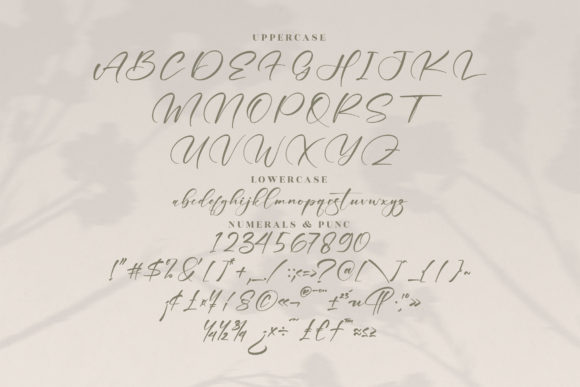 UPPERCASE
ABCDEFGHIJKL
MNOPQRST
UVWXYZ
LOWERCASE
abcdefghijklmnopqrstuvwxyz
NUMERALS & PUNC
1234567890
!"#$%&'()*+,-./:;<=>?@[\]_{|}~
¡¢£¤¥¦§©«¬®¯°±²³´µ¶·¸¹º»
¼½¾¿×÷ˆ˜£€ƒ™≈≤≥